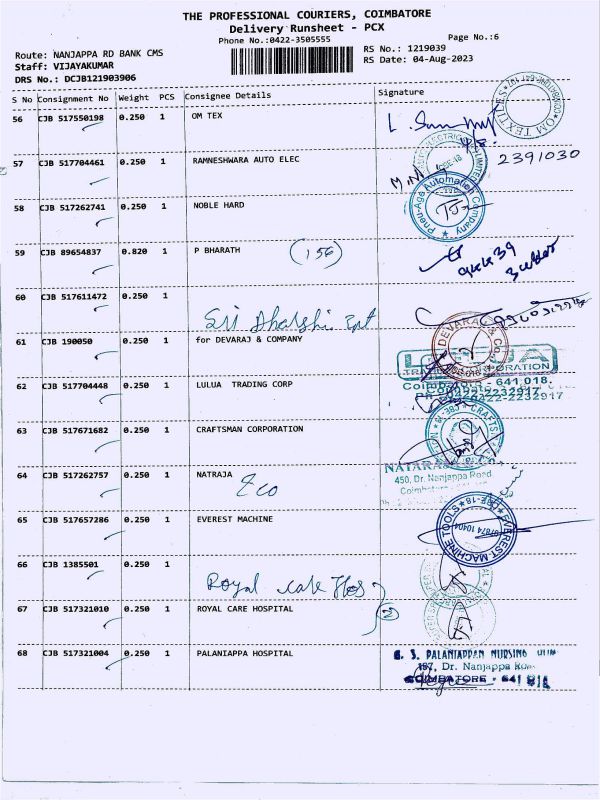 THE PROFESSIONAL COURIERS, COIMBATORE
Delivery Runsheet - PCX
Phone No.:0422-3505555
Page No.:6
Route: NANJAPPA RD BANK CMS
RS No.: 1219039
Staff: VIJAYAKUMAR
RS Date: 04-Aug-2023
DRS No.: DCJB121903906
S No Consignment No Weight PCS Consignee Details Signature
56 CJB 517550198 0.250 1 OM TEX
OM TEXTILES
57 CJB 517704461 0.250 1 RAMNESHWARA AUTO ELEC 2391030
58 CJB 517262741 0.250 1 NOBLE HARD
Pneu-Age Automation Company
59 CJB 89654837 0.820 1 P BHARATH (156)
60 CJB 517611472 0.250 1
Sri Dharshini Ent
61 CJB 190050 0.250 1 for DEVARAJ & COMPANY
DEVARAJ & Co.
62 CJB 517704448 0.250 1 LULUA TRADING CORP
Coimbatore - 641 018.
Ph 0422-2232917
63 CJB 517671682 0.250 1 CRAFTSMAN CORPORATION
64 CJB 517262757 0.250 1 NATRAJA
Eco
450, Dr. Nanjappa Road
65 CJB 517657286 0.250 1 EVEREST MACHINE
EVEREST MACHINE TOOLS
66 CJB 1385501 0.250 1
Royal Care Hos
67 CJB 517321010 0.250 1 ROYAL CARE HOSPITAL
68 CJB 517321004 0.250 1 PALANIAPPA HOSPITAL
PALANIAPPAN NURSING
Dr. Nanjappa Road
COIMBATORE - 641 018